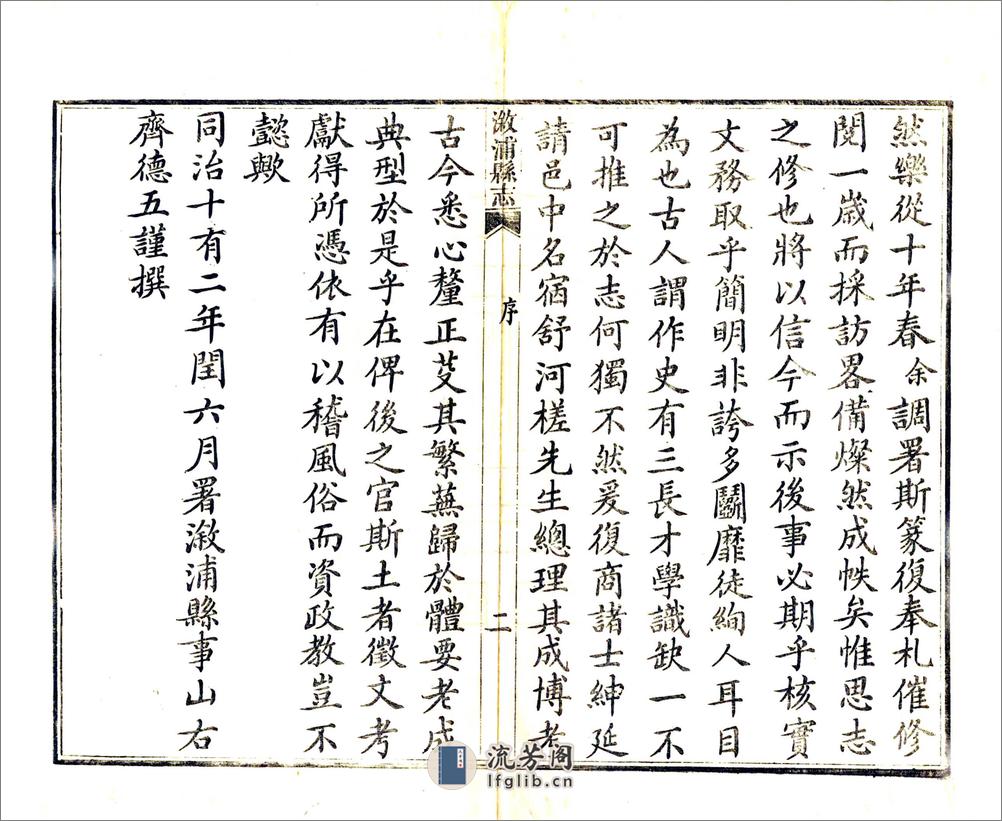 然樂從十年春余調署斯篆復奉札催修
閱一歲而採訪畧備燦然成帙矣惟思志
之修也將以信今而示後事必期乎核實
文務取乎簡明非誇多鬭靡徒絢人耳目
為也古人謂作史有三長才學識缺一不
可推之於志何獨不然爰復商諸士紳延
請邑中名宿舒河槎先生總理其成博考
漵浦縣志
序
二
古今悉心釐正芟其繁蕪歸於體要老成
典型於是乎在俾後之官斯土者徵文考
獻得所憑依有以稽風俗而資政教豈不
懿歟
同治十有二年閏六月署漵浦縣事山右
齊德五謹撰
流芳阁
lfglib.cn